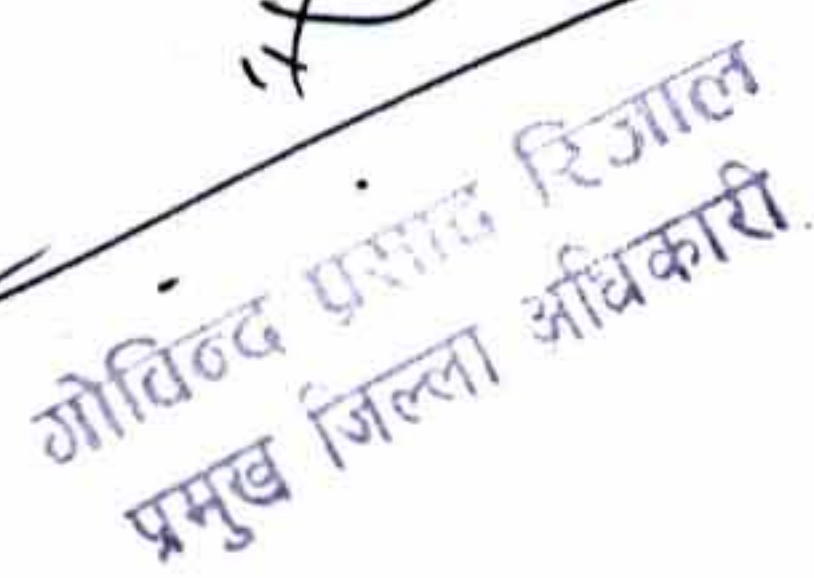 गोविन्द प्रसाद रिजाल
प्रमुख जिल्ला अधिकारी